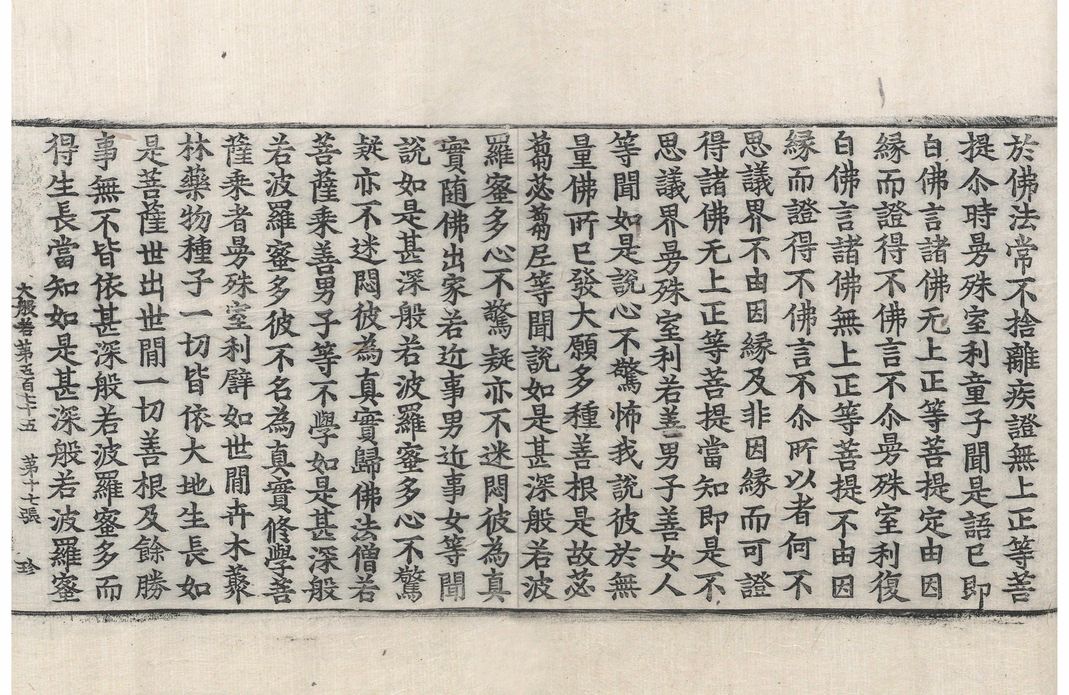 於佛法常不捨離疾證無上正等菩
提尒時曼殊室利童子聞是語已即
白佛言諸佛无上正等菩提定由因
緣而證得不佛言不尒曼殊室利復
白佛言諸佛無上正等菩提不由因
緣而證得不佛言不尒所以者何不
思議界不由因緣及非因緣而可證
得諸佛无上正等菩提當知即是不
思議界曼殊室利若善男子善女人
等聞如是說心不驚怖我說彼於無
量佛所已發大願多種善根是故苾
蒭苾蒭尼等聞說如是甚深般若波
羅蜜多心不驚疑亦不迷悶彼為真
實隨佛出家若近事男近事女等聞
說如是甚深般若波羅蜜多心不驚
疑亦不迷悶彼為真實歸佛法僧若
菩薩乘善男子等不學如是甚深般
若波羅蜜多彼不名為真實修學菩
薩乘者曼殊室利譬如世閒卉木藂
林藥物種子一切皆依大地生長如
是菩薩世出世閒一切善根及餘勝
事無不皆依甚深般若波羅蜜多而
得生長當知如是甚深般若波羅蜜
大般若第五百七十五 第十七張 珍